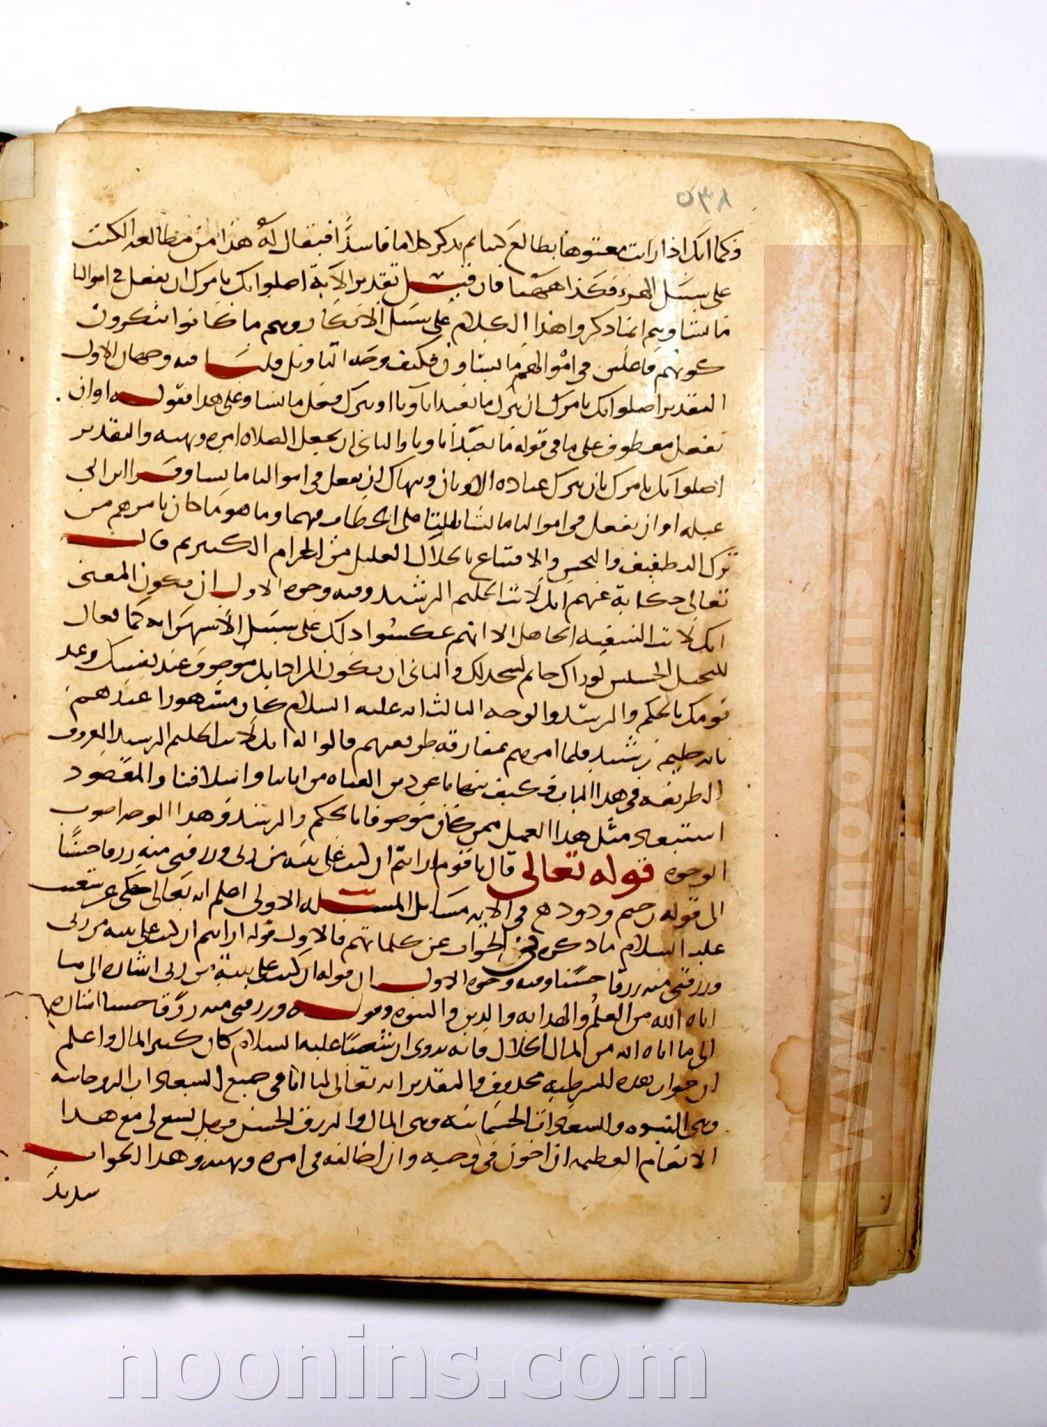 ٥٣٨
فكما انك اذا رايت معتوها يطالع كتبا ثم يذكر كلاما فاسدا فيقال له هذا من مطالعة الكتب
على سبيل الهزء فكذا ههنا فان قيل تقدير الآية اصلواتك تامرك ان نفعل في اموالنا
ما نشاء وهم انما ذكروا هذا الكلام على سبيل الانكار وهم ما كانوا ينكرون
كونهم فاعلين في اموالهم ما يشاؤن فكيف وجه التاويل قلنا فيه وجهان الاول
التقدير اصلواتك تامرك ان نترك ما يعبد اباؤنا او نترك فعل ما نشاء وعلى هذا فقوله او ان
نفعل معطوف على ما في قوله ما يعبد اباونا والثاني ان يجعل الصلاة امره ونهيه والتقدير
اصلواتك تامرك بان نترك عبادة الاوثان وتنهاك ان نفعل في اموالنا ما نشا وقرا ابن ابي
عبله او ان تفعل في اموالنا ما تشا بتا الخطاب فيهما وما هو ما كان يامرهم من
ترك التطفيف والبخس والاقتناع بالحلال القليل من الحرام الكثير ثم قال
تعالى حكاية عنهم انك لانت الحليم الرشيد وفيه وجوه الاول ان يكون المعنى
انك لانت السفيه الجاهل الا انهم عكسوا ذلك على سبيل الاستهزاء به كما يقال
للبخيل الخسيس لو راك حاتم لسجد لك والثاني ان يكون المراد انك موصوف عند نفسك وعند
قومك بالحكم والرشد والوجه الثالث انه عليه السلام كان مشهورا عندهم
بانه حليم رشيد فلما امرهم بمفارقة طريقتهم قالوا له انك لانت الحليم الرشيد المعروف
الطريقة في هذا الباب فكيف تنهانا عن دين الفيناه من ابائنا واسلافنا والمقصود
استبعاد مثل هذا العمل ممن كان موصوفا بالحكم والرشد وهذا الوجه اصوب
الوجوه قوله تعالى قال يا قوم ارايتم ان كنت على بينة من ربي ورزقني منه رزقا حسنا
الى قوله رحيم ودود هو في الاية مسايل المسئلة الاولى اعلم انه تعالى حكى عن شعيب
عليه السلام ما ذكره في الجواب عن كلماتهم فالاول قوله ارايتم ان كنت على بينة من ربي
ورزقني منه رزقا حسنا وفيه وجوه الاول ان قوله ان كنت على بينة من ربي اشارة الى ما
اتاه الله من العلم والهداية والدين والنبوة وقوله ورزقني منه رزقا حسنا اشارة
الى ما اتاه الله من المال الحلال فانه يروى ان شعيبا عليه السلام كان كثير المال واعلم
ان جواب هذه الشرطية محذوف والتقدير انه تعالى لما اتاني جميع السعادات الروحانية
وهي النبوة والسعادات الجسمانية وهي المال والرزق الحسن فهل يسع لي مع هذا
الانعام العظيم ان اخون في وحيه وان اخالفه في امره ونهيه وهذا الجواب
شديد
noonins.com
www.noonins